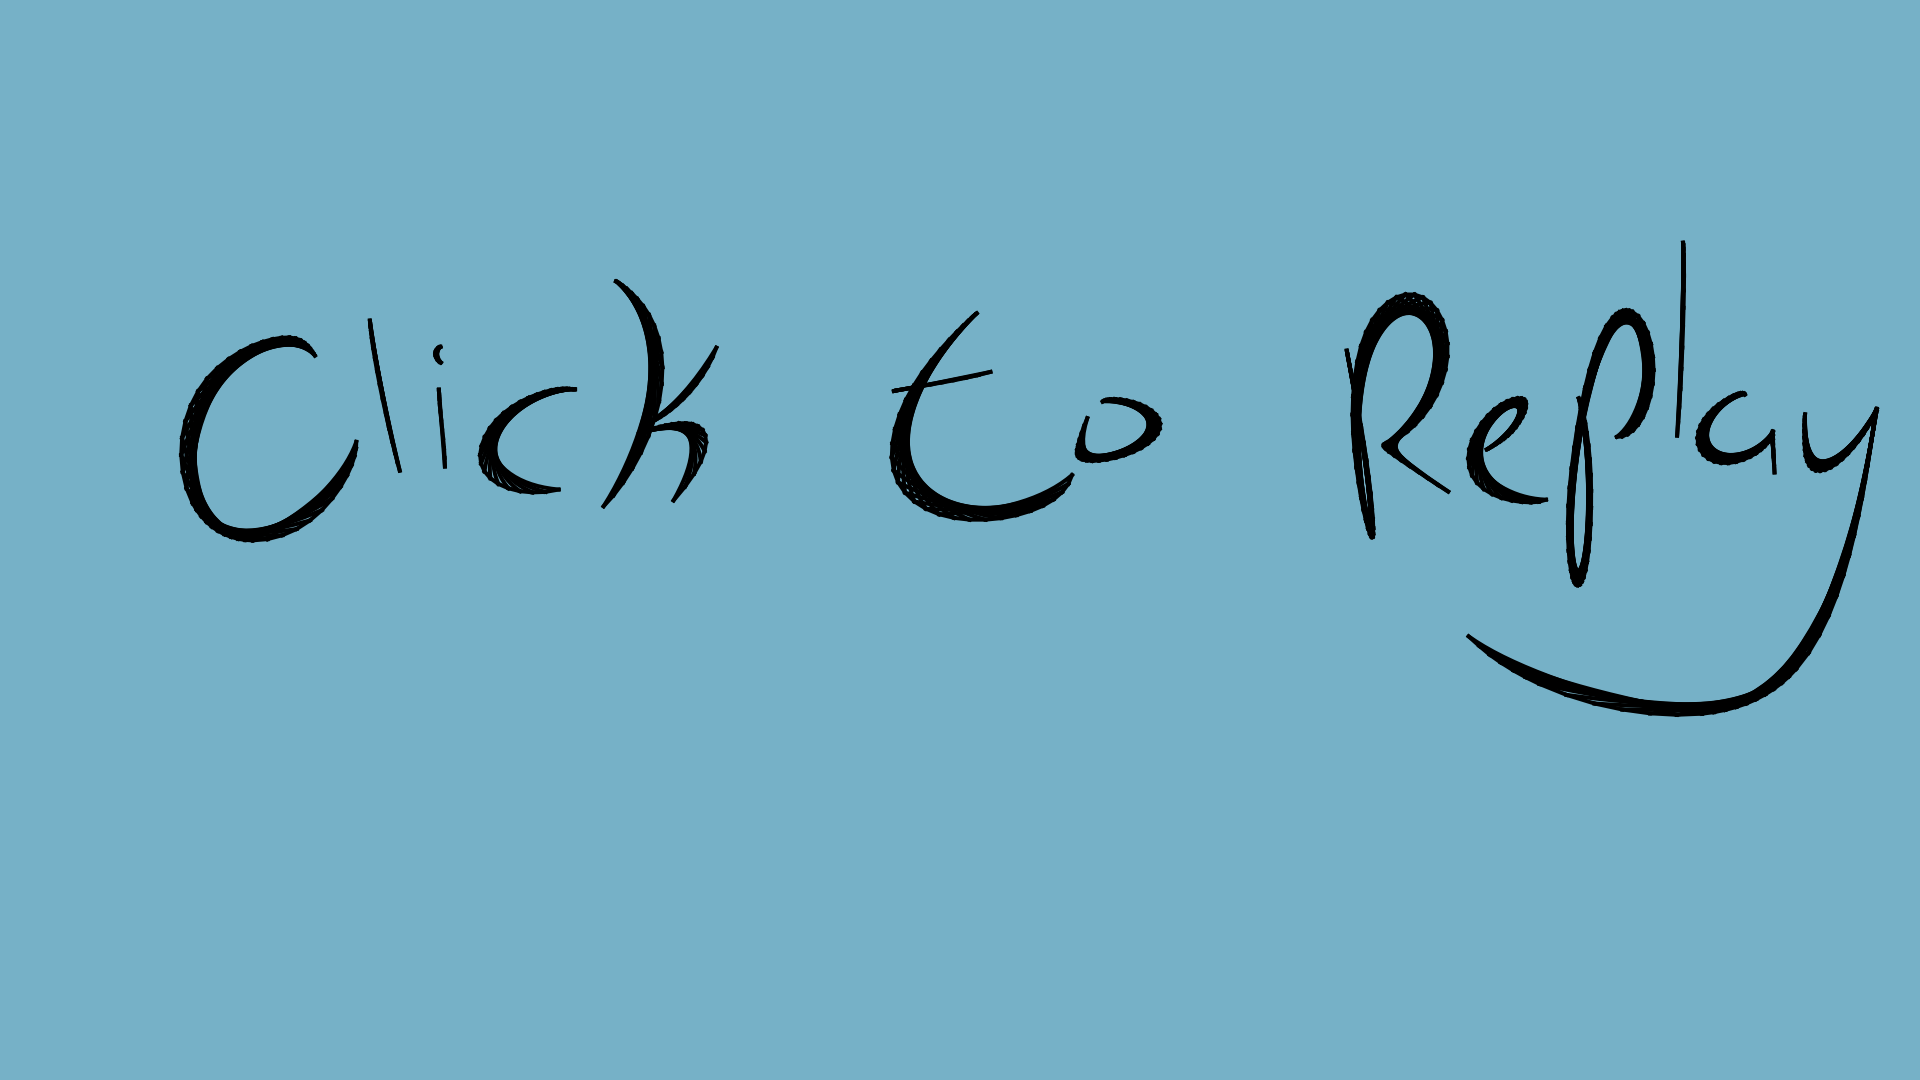 Click to Replay